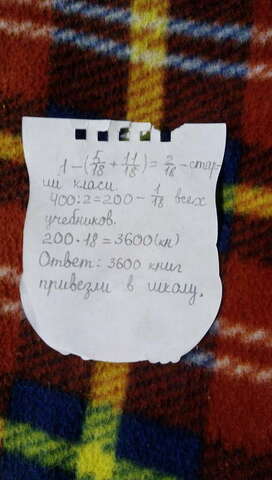 1 - (5/18 + 11/18) = 2/18 - стар-
ши класи.
400:2=200 - 1/18 всех
учебников.
200·18=3600(кн)
Ответ: 3600 книг
привезли в школу.